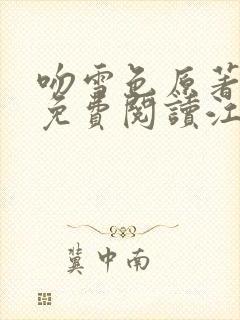 吻雪色原著
免費閱讀江
冀中南